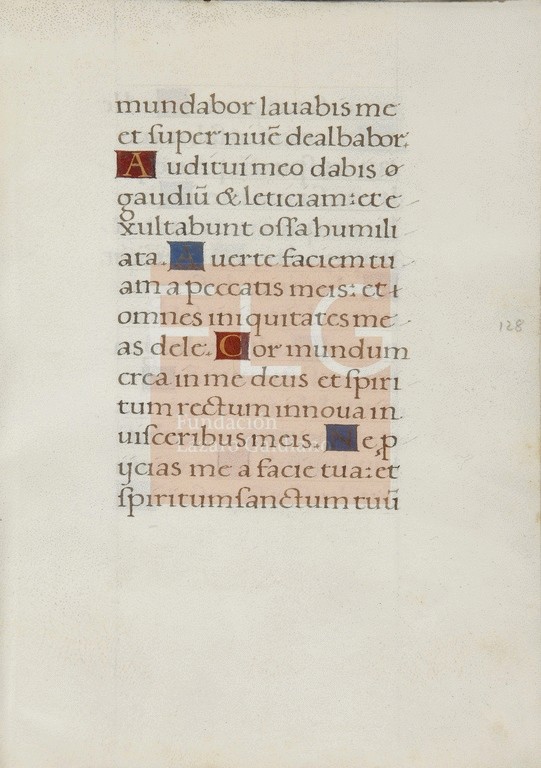 mundabor lauabis me
et ſuper niuē dealbabor.
Auditui meo dabis
gaudiū & leticiam: et e
xultabunt oſſa humili
ata. Auerte faciem tu
am a peccatis meis: et
omnes iniquitates me
as dele. Cor mundum
crea in me deus et ſpiri
tum rectum innoua in
uiſceribus meis. Ne p
ijcias me a facie tua: et
ſpiritum ſanctum tuū
128
FLG
Fundación
Lázaro Galdiano